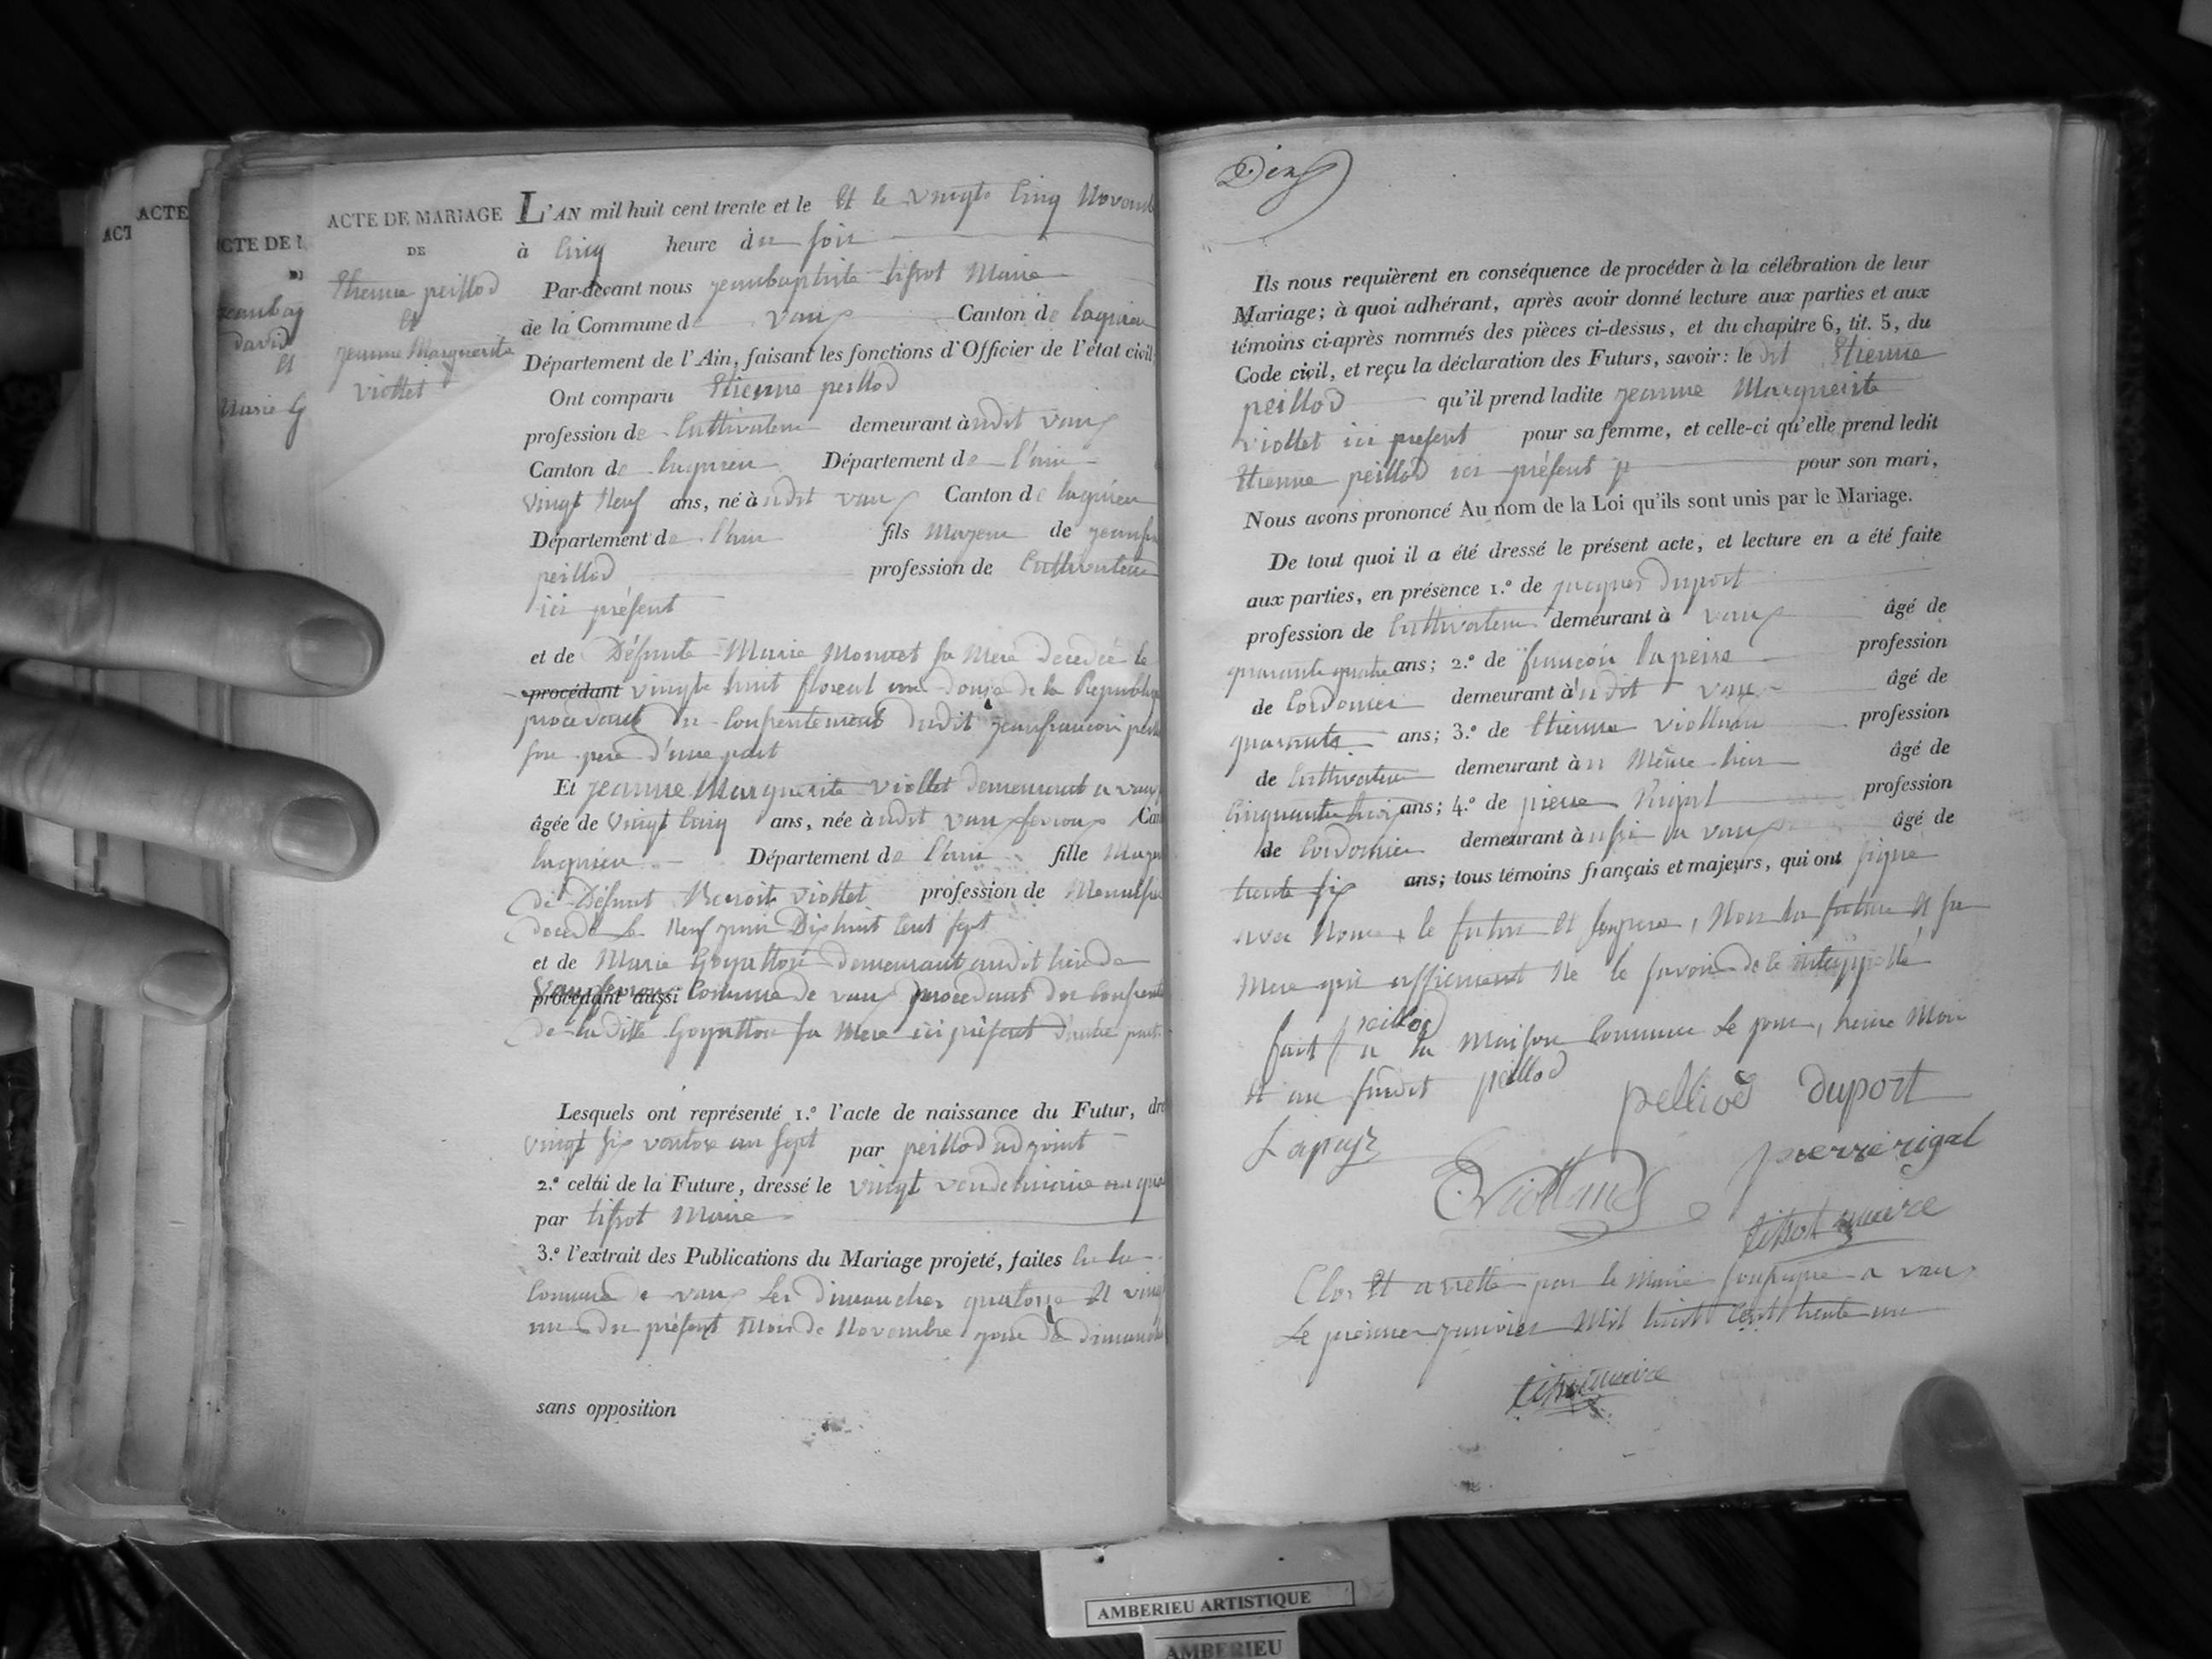 ACTE
ACT
ACTE DE MARIAGE
DE
Etienne peillod
Et
jeanne Marguerite
viollet
CTE DE
david
Et
Marie G
L'AN mil huit cent trente et le Et le vingt Cinq Novemb
à Cinq heure du soir
Par-devant nous jeanbaptiste tissot Maire
de la Commune de vaux Canton de lagnieu
Département de l'Ain, faisant les fonctions d'Officier de l'état civil
Ont comparu Etienne peillod
profession de Cultivateur demeurant à udit vaux
Canton de lagnieu Département de l'ain
vingt Neuf ans, né à udit vaux Canton de lagnieu
Département de l'ain fils Majeur de jeanfr
peillod profession de Cultivateur
ici présent
et de Défunte Marie Monnet sa Mere décédée le
procédant vingt huit floreal an douze de la Republiq
procedant du Consentement dudit jeanfrancois peil
son pere d'une part
Et jeanne Marguerite viollet demeurant a vaux
âgée de vingt Cinq ans, née à udit vaux fevroux Can
lagnieu Département de l'ain fille Maje
de Défunt Benoit viollet profession de Menuisie
décédé le Neuf juin Dix huit Cent sept
et de Marie Goyatton demeurant audit lieu de
vaux fevroux procédant aussi Commune de vaux procedant du Consente
de la ditte Goyatton sa Mere ici présent d'autre part
Lesquels ont représenté 1.º l'acte de naissance du Futur, dre
vingt six ventose an sept par peillod adjoint
2.º celui de la Future, dressé le vingt vendemiaire
par tissot Maire
3.º l'extrait des Publications du Mariage projeté, faites
Commune de vaux les dimanches quatorze Et ving
un du présent Mois de Novembre jour de dimanche
sans opposition
Ils nous requièrent en conséquence de procéder à la célébration de leur
Mariage; à quoi adhérant, après avoir donné lecture aux parties et aux
témoins ci-après nommés des pièces ci-dessus, et du chapitre 6, tit. 5, du
Code civil, et reçu la déclaration des Futurs, savoir: le dit Etienne
peillod qu'il prend ladite jeanne Marguerite
viollet ici present pour sa femme, et celle-ci qu'elle prend ledit
Etienne peillod ici présent pour son mari,
Nous avons prononcé Au nom de la Loi qu'ils sont unis par le Mariage.
De tout quoi il a été dressé le présent acte, et lecture en a été faite
aux parties, en présence 1.º de jacques duport
profession de Cultivateur demeurant à vaux âgé de
quarante quatre ans; 2.º de francois lapeire profession
de Cordonier demeurant à udit vaux âgé de
quarante ans; 3.º de Etienne violland profession
de Cultivateur demeurant à u Même lieu âgé de
Cinquante trois ans; 4.º de pierre Rigal profession
de Cordonier demeurant à vaux âgé de
trente six ans; tous témoins français et majeurs, qui ont signé
avec Nous, le futur Et son pere, Non la future Et sa
Mere qui affirment Ne le savoir de ce interppellé
peillod
fait a la Maison Commune le jour, heure Moi
Et an susdit peillod
pelliod duport
Violland
pierre rigal
tissot maire
Clos Et arretté par le Maire soussigné a vaux
le premier janvier Mil huit Cent trente un
tissot maire
AMBERIEU ARTISTIQUE
AMBERIEU